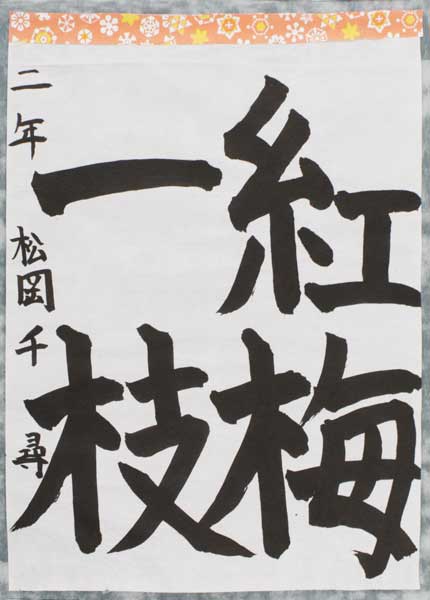 紅梅
一枝
二年 松岡千尋